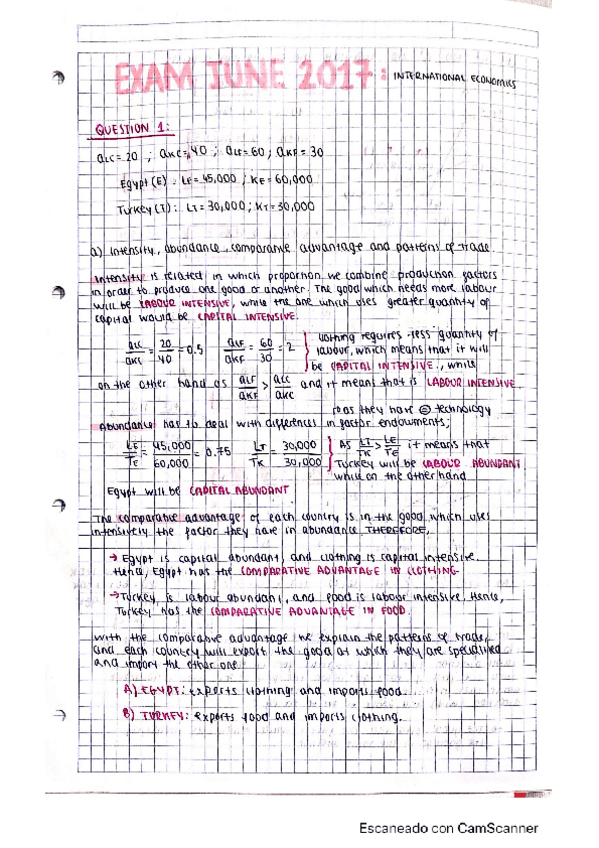 EXAM JUNE 2017: INTERNATIONAL ECONOMICS
QUESTION 1:
aLC = 20 ; aKC = 40 ; aLF = 60 ; aKF = 30
Egypt (E) : LE = 45,000 ; KE = 60,000
Turkey (T) : LT = 30,000 ; KT = 30,000
a) Intensity, abundance, comparative advantage and patterns of trade.
Intensity is related in which proportion we combine production factors
in order to produce one good or another. The good which needs more labour
will be LABOUR INTENSIVE, while the one which uses greater quantity of
capital would be CAPITAL INTENSIVE.
aLC/aKC = 20/40 = 0.5 aLF/aKF = 60/30 = 2 } clothing requires less quantity of
labour, which means that it will
be CAPITAL INTENSIVE, while
on the other hand as aLF/aKF > aLC/aKC and it means that is LABOUR INTENSIVE
as they have = technology
Abundance has to deal with differences in factor endowments;
LE/TE = 45,000/60,000 = 0.75 LT/TK = 30,000/30,000 } As LT/TK > LE/TE it means that
Turkey will be LABOUR ABUNDANT
while on the other hand
Egypt will be CAPITAL ABUNDANT
The comparative advantage of each country is in the good which uses
intensively the factor they have in abundance THEREFORE,
→ Egypt is capital abundant, and clothing is capital intensive.
Hence, Egypt has the COMPARATIVE ADVANTAGE IN CLOTHING
→ Turkey, is labour abundant, and food is labour intensive. Hence,
Turkey has the COMPARATIVE ADVANTAGE IN FOOD.
With the comparative advantage we explain the patterns of trade,
and each country will export the good at which they are specialised
and import the other one.
A) EGYPT: exports clothing and imports food.
B) TURKEY: exports food and imports clothing.
Escaneado con CamScanner